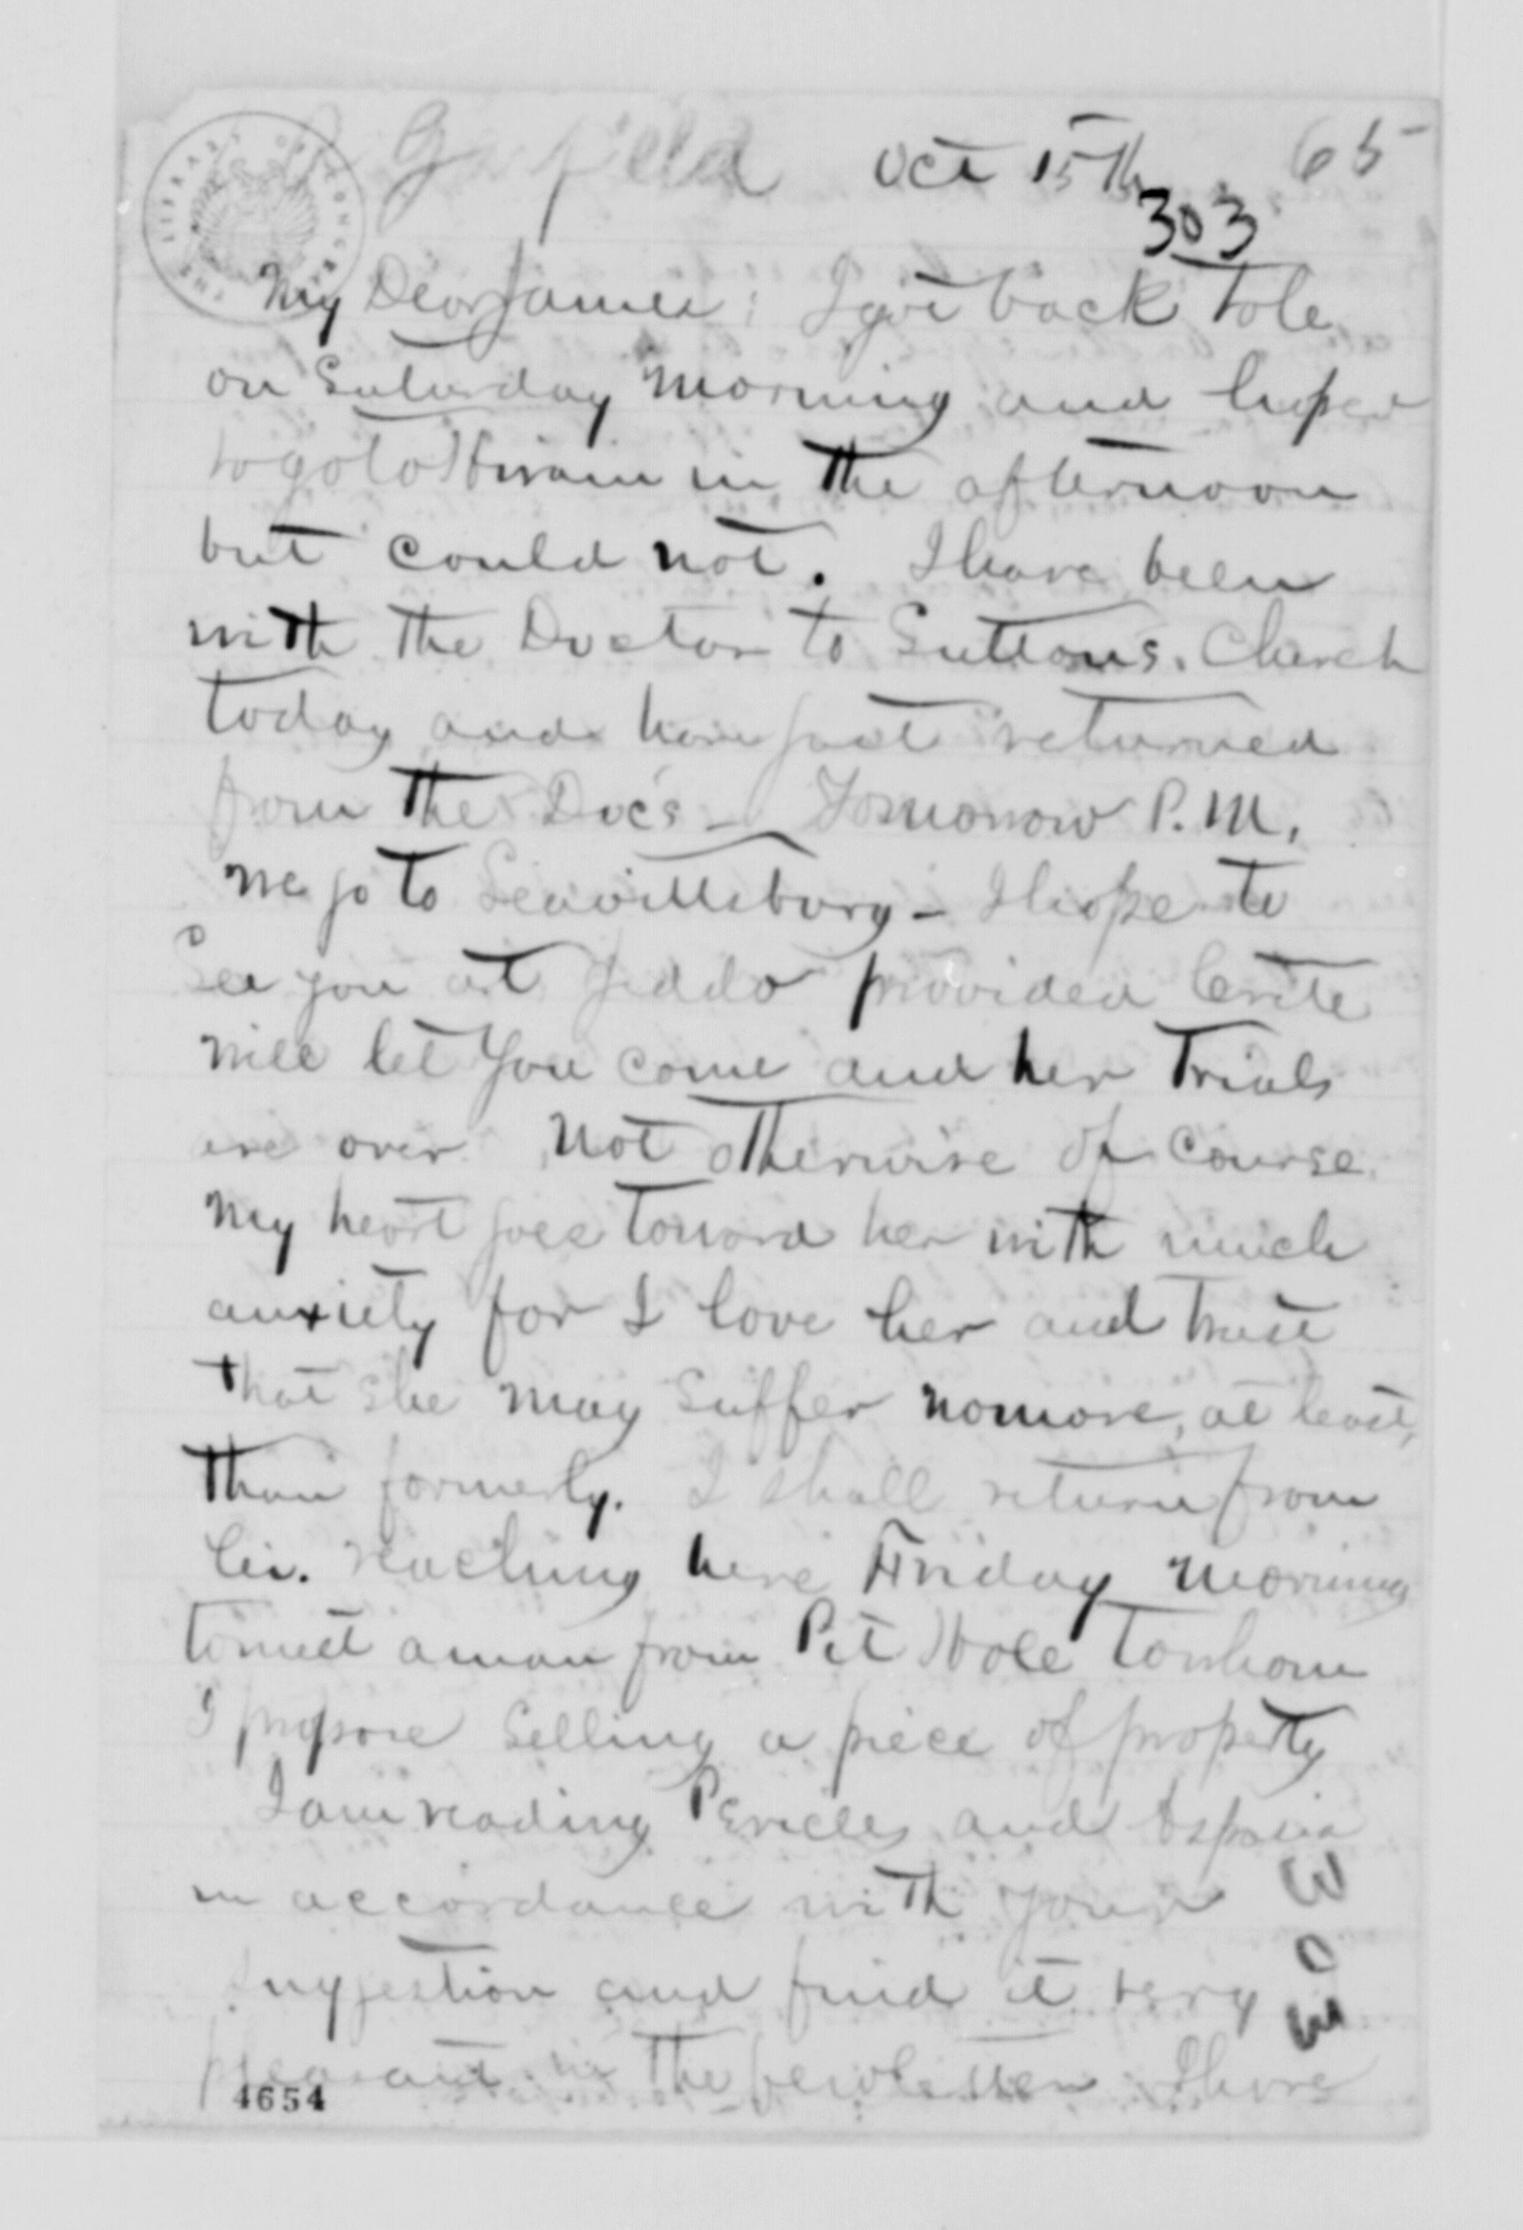 Garfield Oct 15th 65
303
My Dear James: I got back to Cle
on Saturday morning and hoped
to go to Hiram in the afternoon
but could not. I have been
with the Doctor to Suttons. Church
today and have just returned
from the Doc's - Tomorrow P.M.
we go to Leavittsburg - I hope to
see you at Jeddo provided Crete
will let you come and her trials
are over not otherwise of course.
My heart goes toward her with much
anxiety for I love her and trust
that she may suffer nomore, at least,
than formerly. I shall return from
Cin. reaching here Friday morning
to meet a man from Pit Hole to whom
I propose selling a piece of property
I am reading Pericles and Aspasia
in accordance with your
suggestion and find it very
pleasant in the few letters I have
303
4654
THE LIBRARY OF CONGRESS